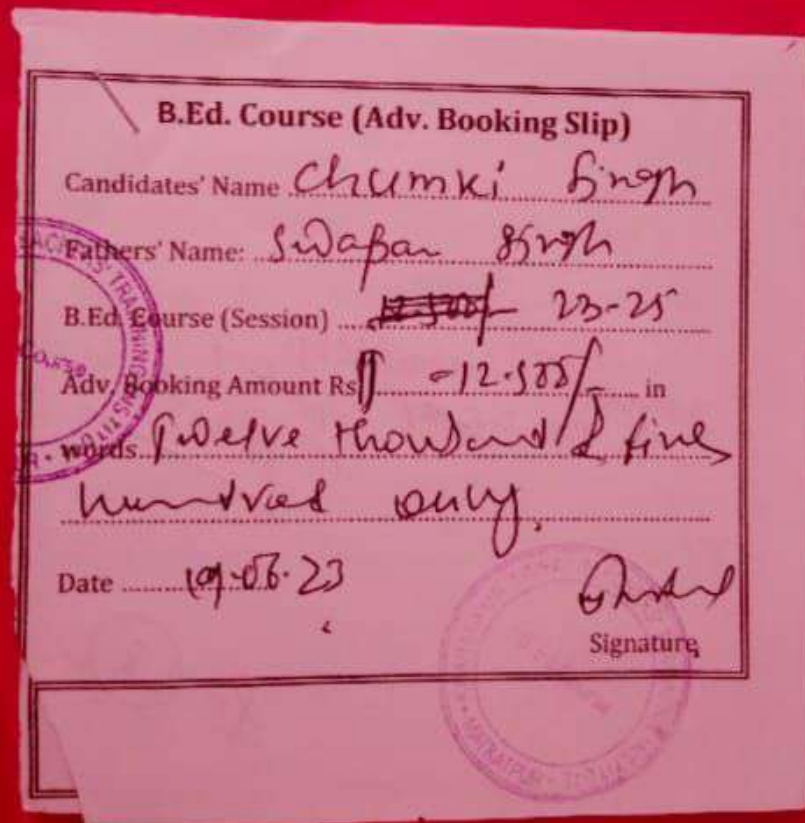 B.Ed. Course (Adv. Booking Slip)
Candidates' Name Chumki Singh
Fathers' Name: Swapan Singh
B.Ed. Course (Session) 23-25
Adv. Booking Amount Rs. -12.500/- in
words Twelve thousand & five
hundred only.
Date 19.06.23
Signature